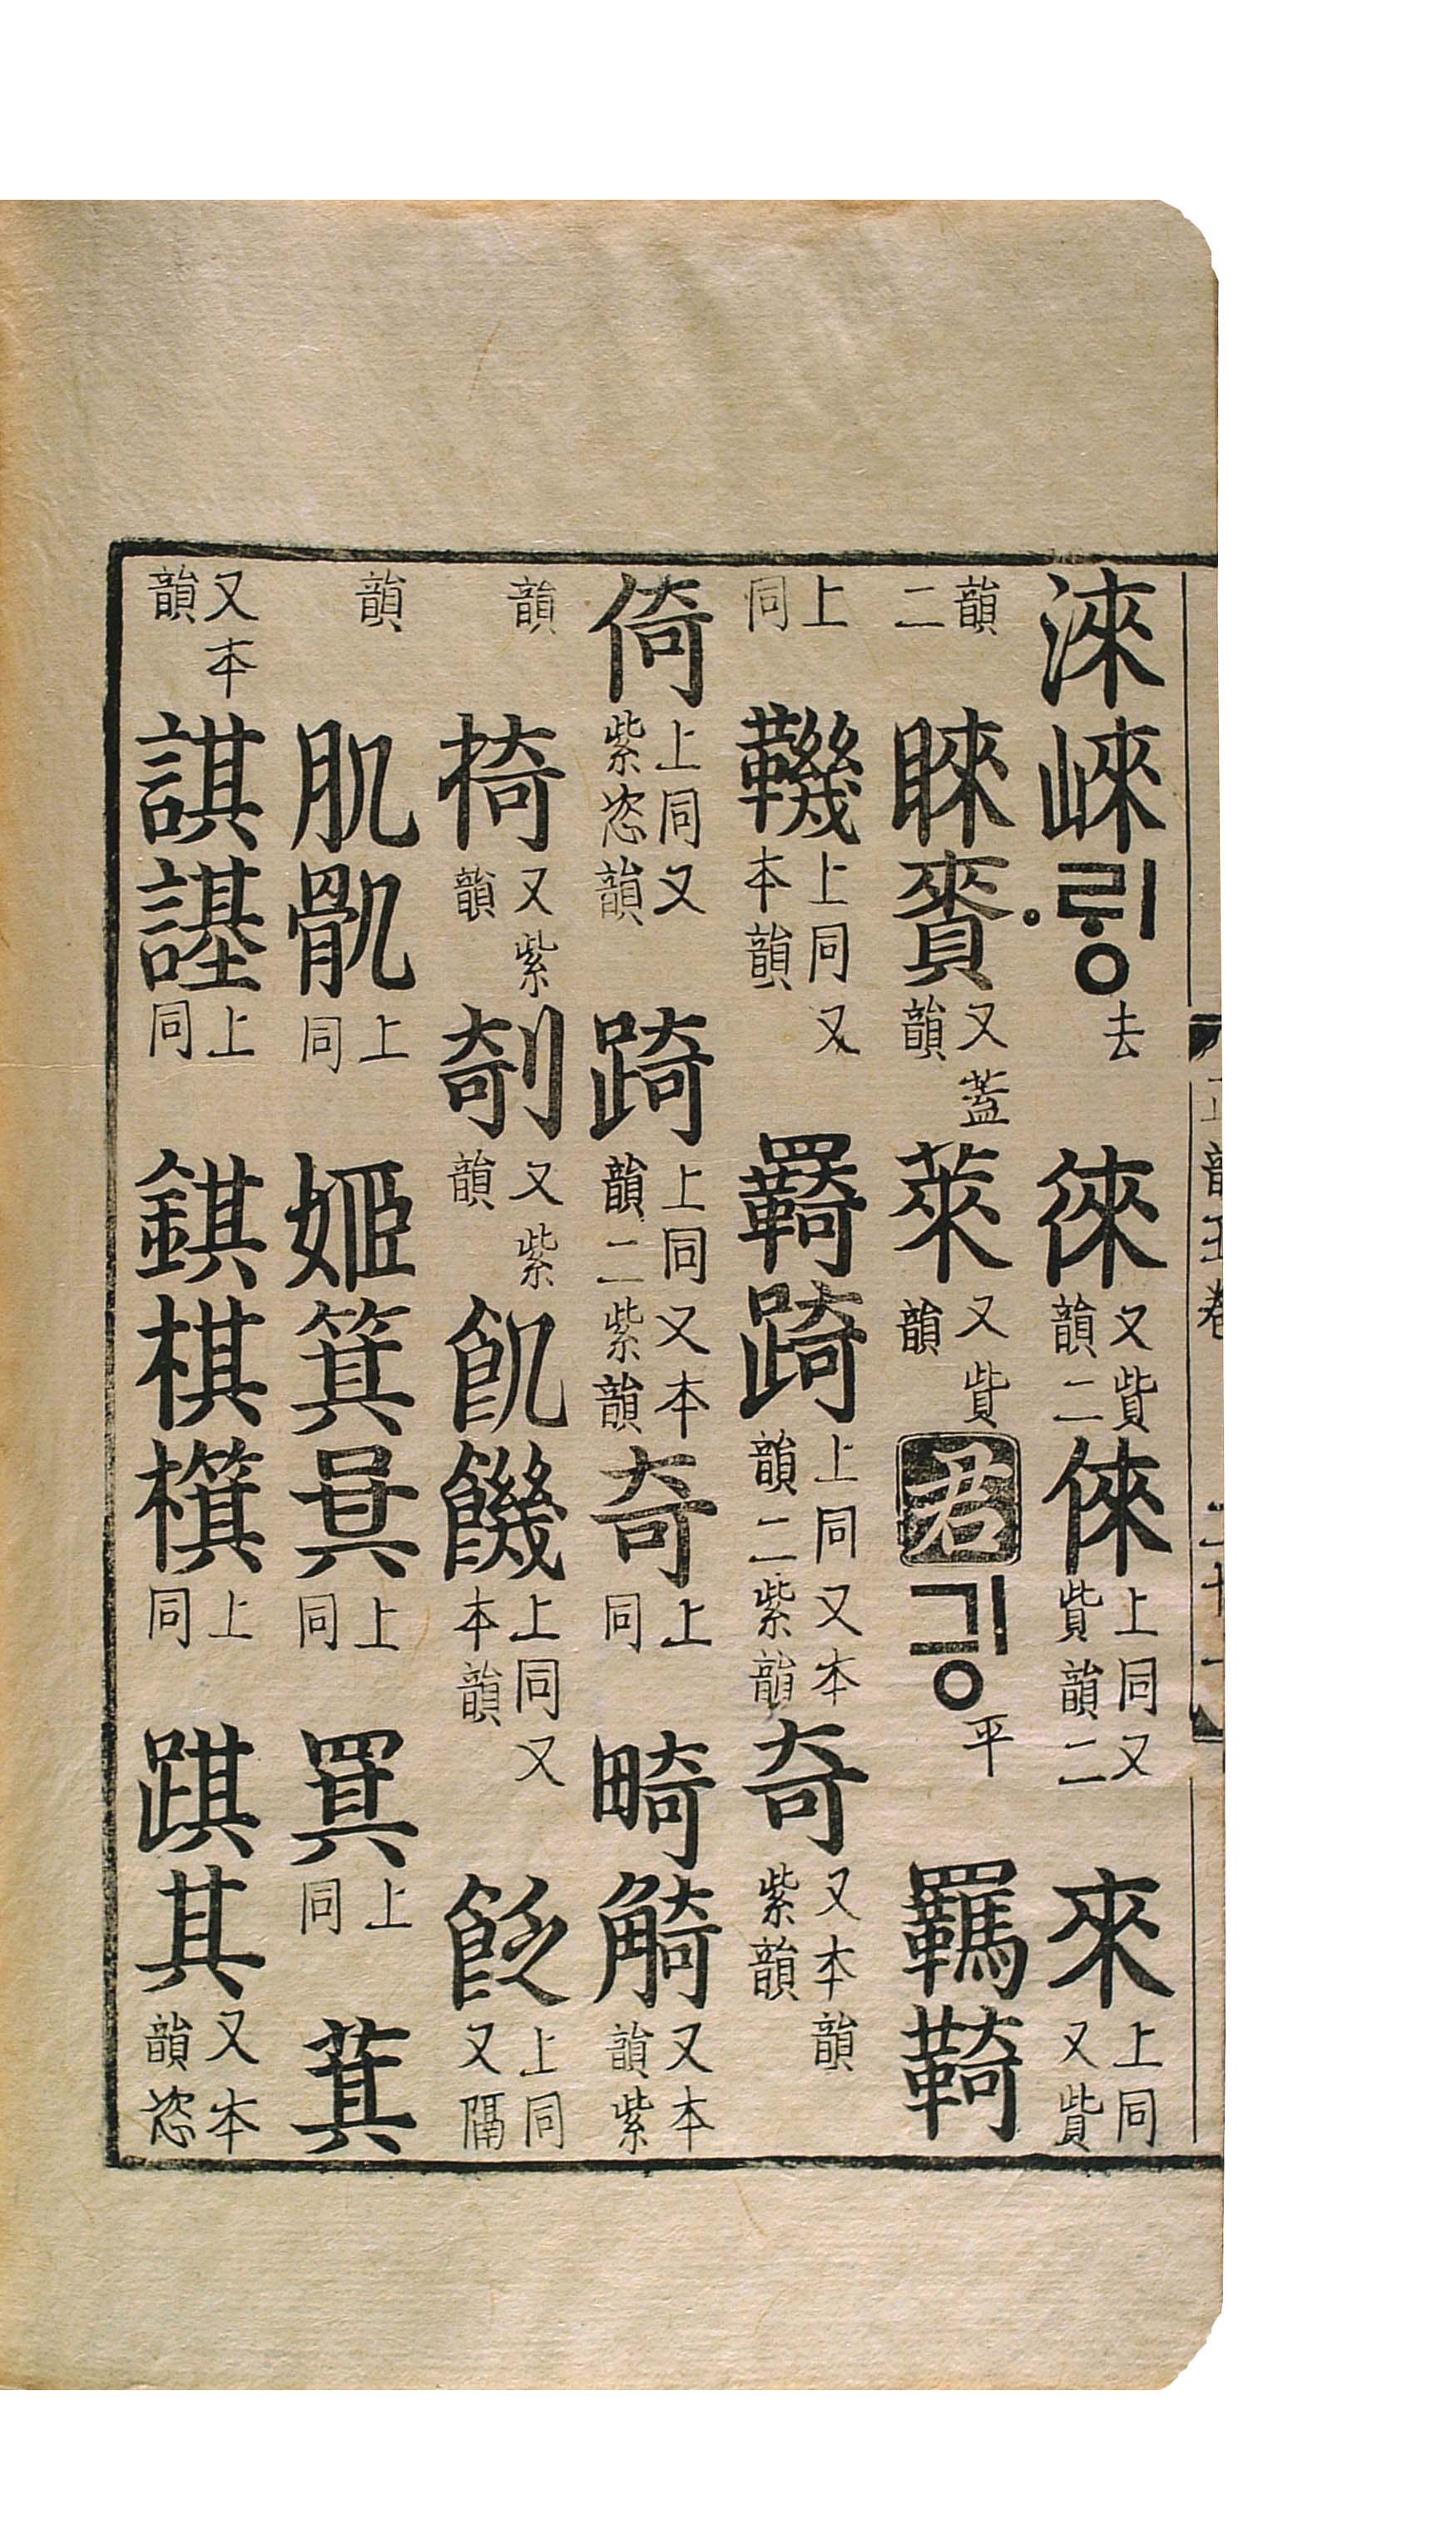 淶崍〮ᄅᆡᆼ去徠又貲韻二倈上同又貲韻二來上同又貲
韻二睞賚又蓋韻萊又貲韻君긩平羈䩭
上同鞿上同又本韻羇踦上同又本韻二紫韻奇又本韻紫韻
倚上同又紫恣韻踦上同又本韻二紫韻奇上同畸觭又本韻紫
韻椅又紫韻剞又紫韻飢饑上同又本韻上同又隔
韻肌上同姬箕上同上同萁
又本韻諆諅上同錤棋檱上同踑其又本韻恣